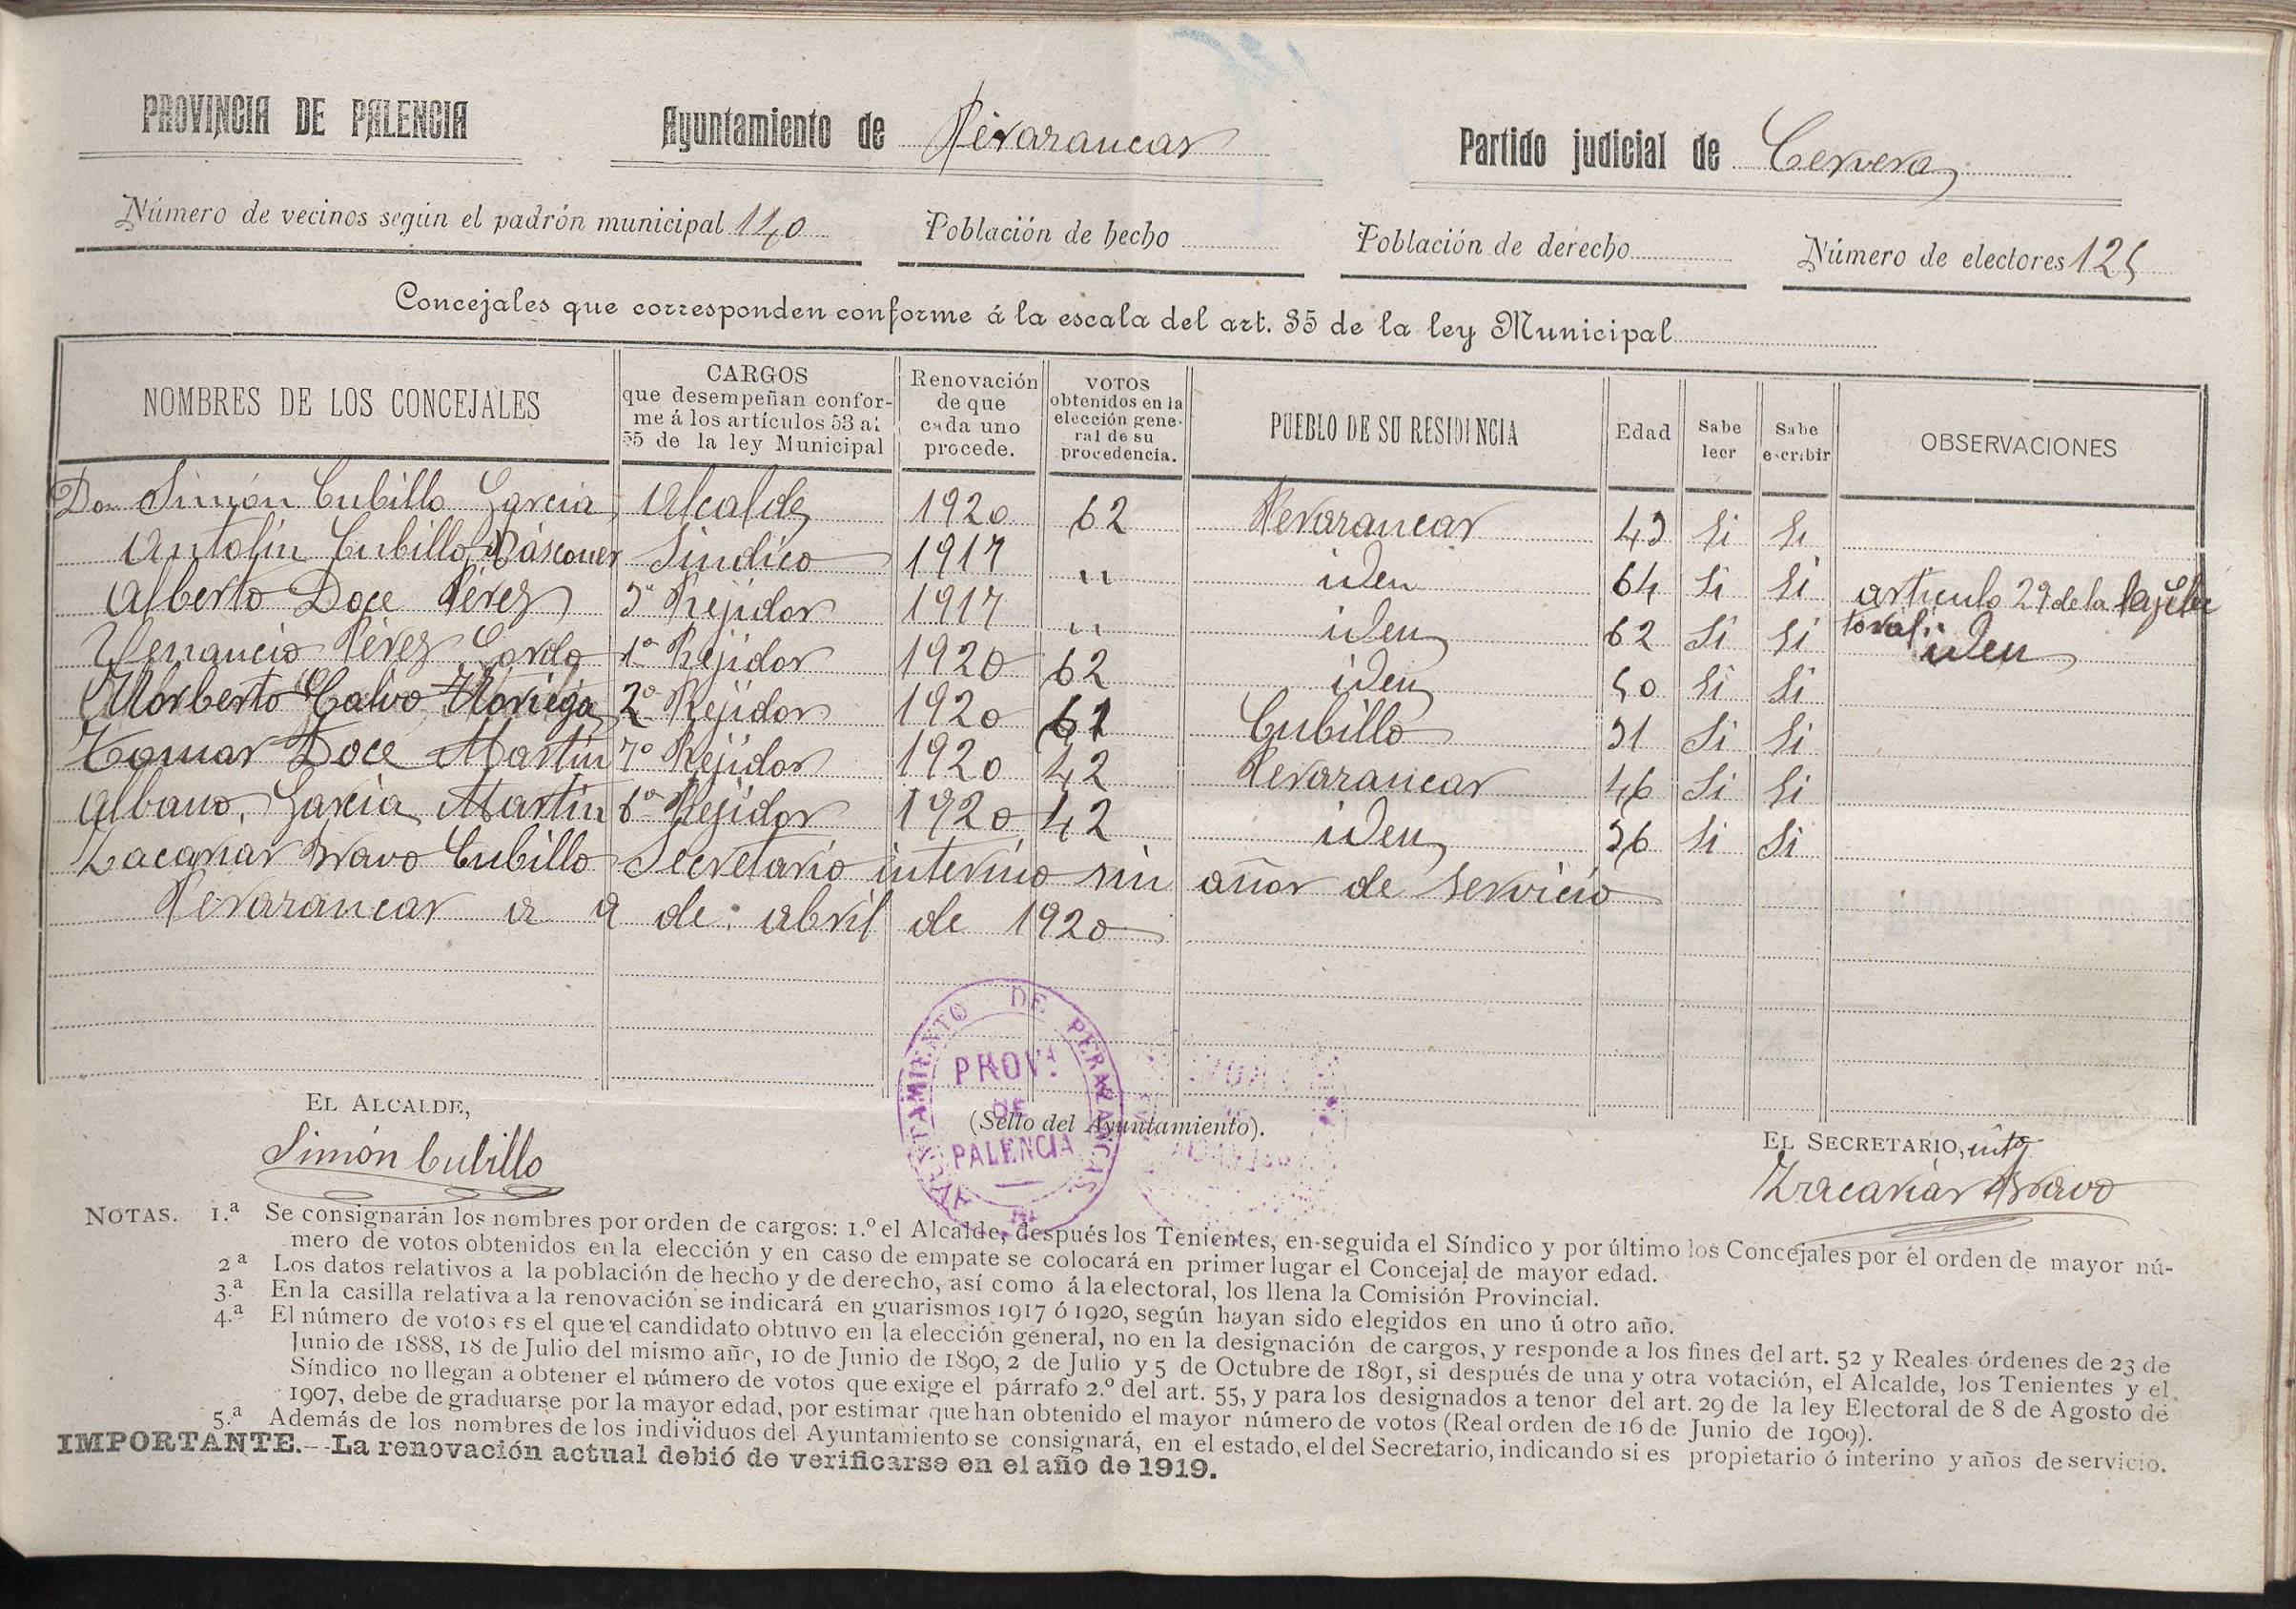 PROVINCIA DE PALENCIA Ayuntamiento de Perarancas Partido judicial de Cervera
Número de vecinos según el padrón municipal 140 Población de hecho Población de derecho Número de electores 125
Concejales que corresponden conforme á la escala del art. 35 de la ley Municipal
NOMBRES DE LOS CONCEJALES CARGOS que desempeñan conforme á los artículos 53 al 55 de la ley Municipal Renovación de que cada uno procede. VOTOS obtenidos en la elección general de su procedencia. PUEBLO DE SU RESIDENCIA Edad Sabe leer Sabe escribir OBSERVACIONES
Don Simón Cubillo García Alcalde 1920 62 Perarancas 43 Si Si
Antolín Cubillo Báscones Sindico 1917 " iden 64 Si Si articulo 29 de la ley Elec
Alberto Doce Pérez 3º Rejidor 1917 " iden 62 Si Si toral. iden
Venancio Pérez Gordo 1º Rejidor 1920 62 iden 50 Si Si
Norberto Calvo Noriega 2º Rejidor 1920 61 Cubillo 31 Si Si
Tomas Doce Martín 7º Rejidor 1920 42 Perarancas 46 Si Si
Albano García Martín 6º Rejidor 1920 42 iden 36 Si Si
Zacarias Bravo Cubillo Secretario interino sin años de servicio
Perarancas a 9 de abril de 1920
AYUNTAMIENTO DE PERAZANCAS
PROVA DE PALENCIA
EL ALCALDE,
(Sello del Ayuntamiento).
EL SECRETARIO, intº
Simón Cubillo
Zacarias Bravo
NOTAS. 1.ª Se consignarán los nombres por orden de cargos: 1.º el Alcalde, después los Tenientes, en seguida el Síndico y por último los Concejales por el orden de mayor nú-
mero de votos obtenidos en la elección y en caso de empate se colocará en primer lugar el Concejal de mayor edad.
2ª Los datos relativos a la población de hecho y de derecho, así como á la electoral, los llena la Comisión Provincial.
3.ª En la casilla relativa a la renovación se indicará en guarismos 1917 ó 1920, según hayan sido elegidos en uno ú otro año.
4.ª El número de votos es el que el candidato obtuvo en la elección general, no en la designación de cargos, y responde a los fines del art. 52 y Reales órdenes de 23 de
Junio de 1888, 18 de Julio del mismo año, 10 de Junio de 1890, 2 de Julio y 5 de Octubre de 1891, si después de una y otra votación, el Alcalde, los Tenientes y el
Síndico no llegan a obtener el número de votos que exige el párrafo 2.º del art. 55, y para los designados a tenor del art. 29 de la ley Electoral de 8 de Agosto de
1907, debe de graduarse por la mayor edad, por estimar que han obtenido el mayor número de votos (Real orden de 16 de Junio de 1909).
5.ª Además de los nombres de los individuos del Ayuntamiento se consignará, en el estado, el del Secretario, indicando si es propietario ó interino y años de servicio.
IMPORTANTE.--La renovación actual debió de verificarse en el año de 1919.